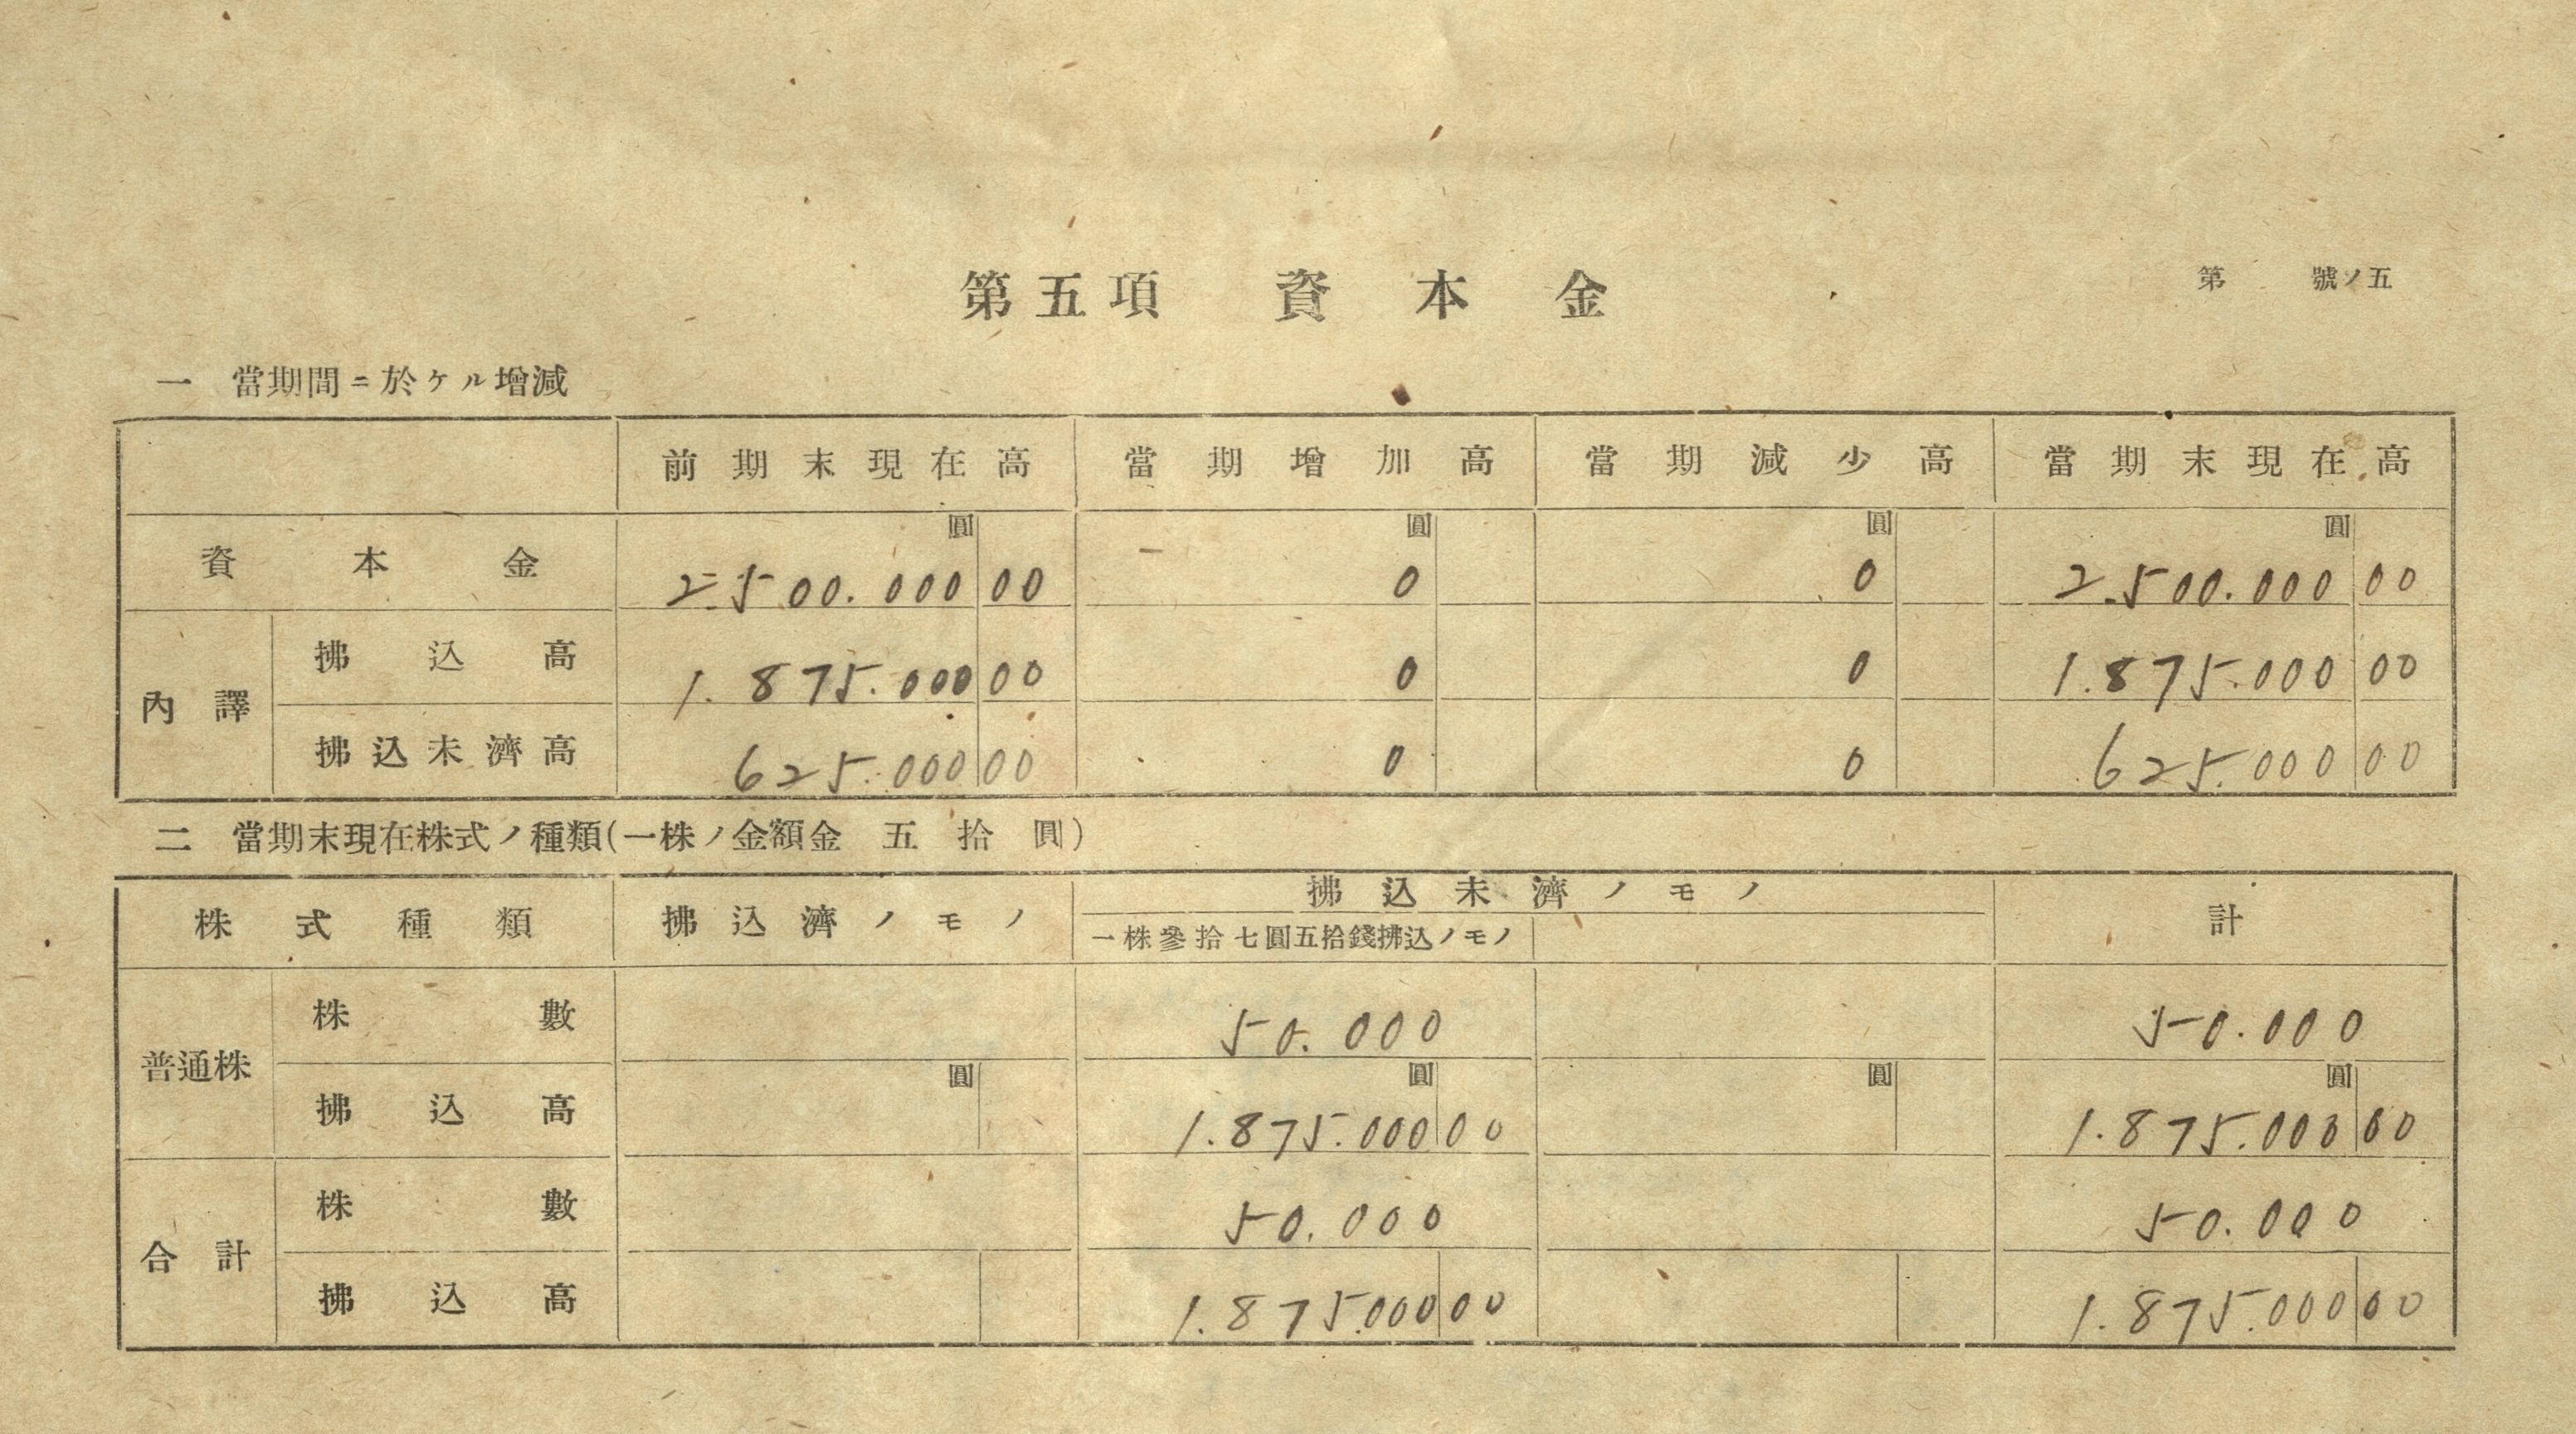 第五項 資本金
第 號ノ五
一 當期間ニ於ケル增減
前期末現在高 當期增加高 當期減少高 當期末現在高
圓 圓 圓 圓
資本金 2.500.000 00 0 0 2.500.000 00
內譯
拂込高 1.875.000 00 0 0 1.875.000 00
拂込未濟高 625.000 00 0 0 625.000 00
二 當期末現在株式ノ種類(一株ノ金額金 五拾圓)
株式種類 拂込濟ノモノ 拂込未濟ノモノ 計
一株參拾七圓五拾錢拂込ノモノ
普通株
株數 50.000 50.000
圓 圓 圓 圓
拂込高 1.875.000 00 1.875.000 00
合計
株數 50.000 50.000
拂込高 1.875.000 00 1.875.000 00